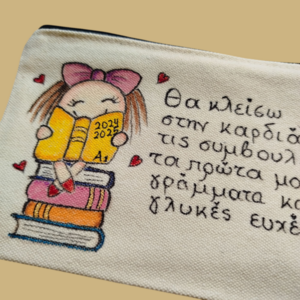 2024
2025
Α1
Θα κλείσω
στην καρδιά
τις συμβουλ
τα πρώτα μο
γράμματα κα
γλυκές ευχέ